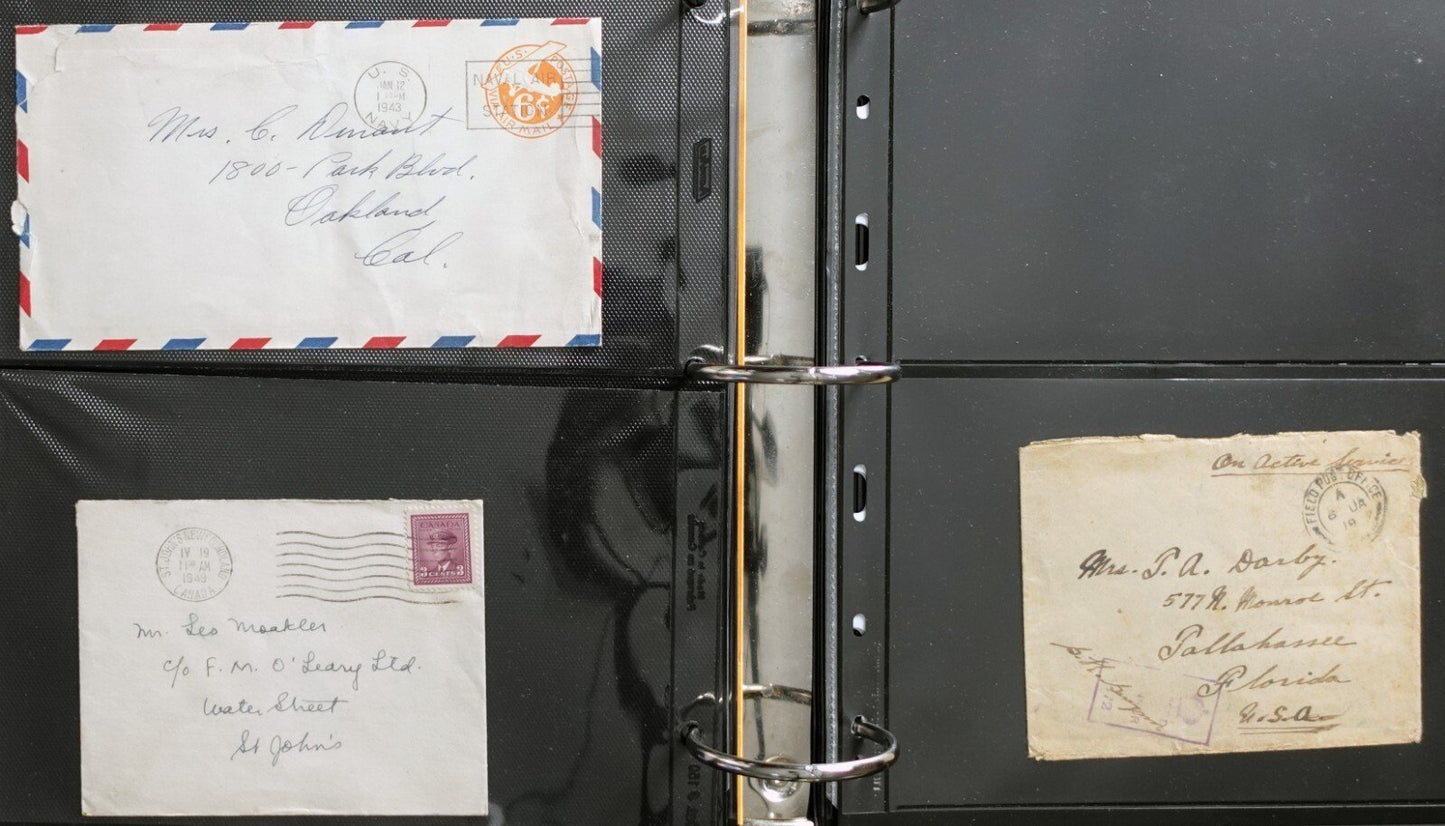 U. S.
JAN 12
1943
NAVY
NAVAL AIR
STATION
U.S. POSTAGE
VIA AIR MAIL
6¢
Mrs. C. Durant
1800 - Park Blvd.
Oakland
Cal.
ST. JOHN'S NEWFOUNDLAND
IV 19
11 AM
CANADA
CANADA
3 CENTS 3
Mr. Leo Moakler
c/o F. M. O'Leary Ltd.
Water Street
St John's
On Active Service
FIELD POST OFFICE
A
6
19
Mrs. T. A. Darby.
577 N. Monroe St.
Tallahassee
Florida
U.S.A.